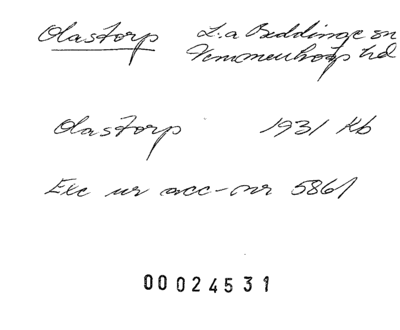 Olastorp L:a Beddinge sn
Vemmenhögs hd
Olastorp 1931 Kb
Exc ur acc-nr 5861
00024531